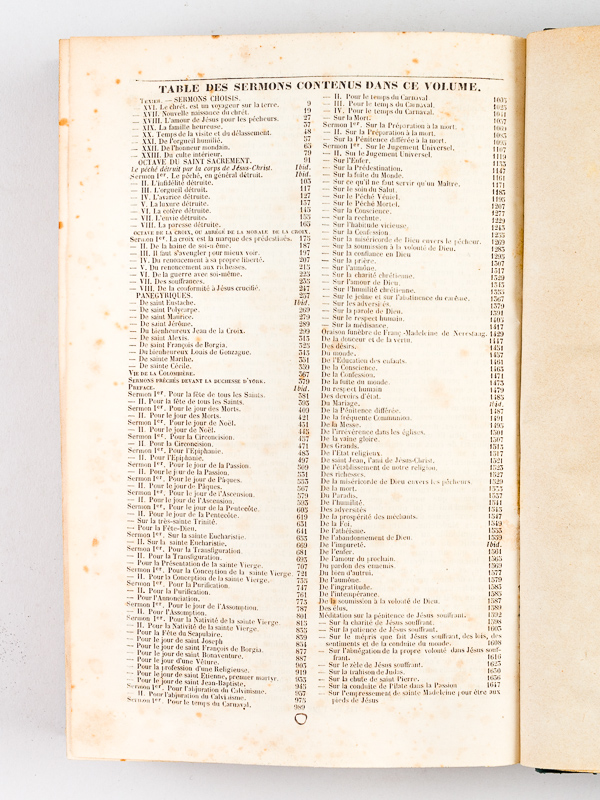 TABLE DES SERMONS CONTENUS DANS CE VOLUME.
Texier. — SERMONS CHOISIS.
— XVI. Le chrét. est un voyageur sur la terre. 9
— XVII. Nouvelle naissance du chrét. 19
— XVIII. L'amour de Jésus pour les pécheurs. 27
— XIX. La famille heureuse. 37
— XX. Temps de la visite et du délassement. 48
— XXI. De l'orgueil humilié. 57
— XXII. De l'honneur mondain. 65
— XXIII. Du culte intérieur. 79
OCTAVE DU SAINT SACREMENT. 91
Le péché détruit par le corps de Jésus-Christ. Ibid.
Sermon Ier. Le péché, en général détruit. Ibid.
— II. L'infidélité détruite. 105
— III. L'orgueil détruit. 117
— IV. L'avarice détruite. 127
— V. La luxure détruite. 137
— VI. La colère détruite. 145
— VII. L'envie détruite. 155
— VIII. La paresse détruite. 165
OCTAVE DE LA CROIX, OU ABRÉGÉ DE LA MORALE DE LA CROIX.
Sermon Ier. La croix est la marque des prédestinés. 175
— II. De la haine de soi-même. 187
— III. Il faut s'aveugler pour mieux voir. 197
— IV. Du renoncement à sa propre liberté. 207
— V. Du renoncement aux richesses. 215
— VI. De la guerre avec soi-même. 225
— VII. Des souffrances. 235
— VIII. De la conformité à Jésus crucifié. 247
PANÉGYRIQUES. 257
— De saint Eustache. Ibid.
— De saint Polycarpe. 269
— De saint Maurice. 279
— De saint Jérôme. 289
— Du bienheureux Jean de la Croix. 299
— De saint Alexis. 315
— De saint François de Borgia. 325
— Du bienheureux Louis de Gonzague. 343
— De sainte Marthe. 351
— De sainte Cécile. 359
VIE DE LA COLOMBIÈRE. 367
SERMONS PRÊCHÉS DEVANT LA DUCHESSE D'YORK. 379
PRÉFACE. Ibid.
Sermon Ier. Pour la fête de tous les Saints. 381
— II. Pour la fête de tous les Saints. 395
Sermon Ier. Pour le jour des Morts. 409
— II. Pour le jour des Morts. 421
Sermon Ier. Pour le jour de Noël. 431
— II. Pour le jour de Noël. 445
Sermon Ier. Pour la Circoncision. 457
— II. Pour la Circoncision. 471
Sermon Ier. Pour l'Epiphanie. 485
— II. Pour l'Epiphanie. 497
Sermon Ier. Pour le jour de la Passion 509
— II. Pour le jour de la Passion. 531
Sermon Ier. Pour le jour de Pâques. 555
— II. Pour le jour de Pâques. 567
Sermon Ier. Pour le jour de l'Ascension. 579
— II. Pour le jour de l'Ascension. 593
Sermon Ier. Pour le jour de la Pentecôte. 605
— II. Pour le jour de la Pentecôte. 619
— Sur la très-sainte Trinité. 631
— Pour la Fête-Dieu. 641
Sermon Ier. Sur la sainte Eucharistie. 655
— II. Sur la sainte Eucharistie. 669
Sermon Ier. Pour la Transfiguration. 681
— II. Pour la Transfiguration. 695
— Pour la Présentation de la sainte Vierge. 707
Sermon Ier. Pour la Conception de la sainte Vierge. 721
— II. Pour la Conception de la sainte Vierge. 735
Sermon Ier. Pour la Purification. 747
— II. Pour la Purification. 761
— Pour l'Annonciation. 775
Sermon Ier. Pour le jour de l'Assomption. 787
— II. Pour l'Assomption. 801
Sermon Ier. Pour la Nativité de la sainte Vierge. 813
— II. Pour la Nativité de la sainte Vierge. 833
— Pour la Fête du Scapulaire. 859
— Pour le jour de saint Joseph
— Pour le jour de saint François de Borgia. 877
— Pour le jour de saint Bonaventure. 887
— Pour le jour d'une Vêture. 905
— Pour la profession d'une Religieuse. 919
— Pour le jour de saint Etienne, premier martyr. 933
— Pour le jour de saint Jean-Baptiste. 943
Sermon Ier. Pour l'abjuration du Calvinisme. 957
— II. Pour l'abjuration du Calvinisme. 973
Sermon Ier. Pour le temps du Carnaval. 989
— II. Pour le temps du Carnaval 1003
— III. Pour le temps du Carnaval. 1025
— IV. Pour le temps du Carnaval. 1041
— Sur la Mort. 1057
Sermon Ier. Sur la Préparation à la mort. 1069
— II. Sur la Préparation à la mort. 1083
— Sur la Pénitence différée à la mort. 1095
Sermon Ier. Sur le Jugement Universel. 1107
— II. Sur le Jugement Universel. 1119
— Sur l'Enfer. 1133
— Sur la Prédestination. 1147
— Sur la fuite du Monde. 1161
— Sur ce qu'il ne faut servir qu'un Maître. 1171
— Sur le soin du Salut. 1183
— Sur le Péché Véniel. 1195
— Sur le Péché Mortel. 1207
— Sur la Conscience. 1217
— Sur la rechute. 1229
— Sur l'habitude vicieuse. 1243
— Sur la Confession 1255
— Sur la miséricorde de Dieu envers le pécheur. 1269
— Sur la soumission à la volonté de Dieu. 1283
— Sur la confiance en Dieu 1295
— Sur la prière. 1507
— Sur l'aumône. 1517
— Sur la charité chrétienne. 1529
— Sur l'amour de Dieu. 1345
— Sur l'humilité chrétienne. 1355
— Sur le jeûne et sur l'abstinence du carême. 1367
— Sur les adversités. 1379
— Sur la parole de Dieu. 1391
— Sur le respect humain. 1405
— Sur la médisance. 1417
Oraison funèbre de Franç.-Madeleine de Nerestang. 1429
De la douceur et de la vertu. 1447
Des désirs. 1451
Du monde. 1457
De l'Education des enfants. 1461
De la Conscience. 1465
De la Confession. 1471
De la fuite du monde. 1475
Du respect humain 1479
Des devoirs d'état. 1485
Du Mariage. Ibid.
De la Pénitence différée. 1487
De la fréquente Communion. 1491
De la Messe. 1495
De l'irrévérence dans les églises. 1504
De la vaine gloire. 1507
Des Grands. 1515
De l'Etat religieux. 1517
De saint Jean, l'ami de Jésus-Christ. 1521
De l'établissement de notre religion. 1525
Des richesses. 1527
De la miséricorde de Dieu envers les pécheurs. 1529
De la mort. 1533
Du Paradis. 1537
De l'humilité. 1541
Des adversités 1543
De la prospérité des méchants. 1547
De la Foi. 1549
De l'athéisme. 1555
De l'abandonnement de Dieu. 1559
De l'impureté. Ibid.
De l'enfer. 1561
De l'amour du prochain. 1565
Du pardon des ennemis. 1569
Du bien d'autrui. 1577
De l'aumône. 1579
De l'ingratitude. 1583
De l'intempérance. 1585
De la soumission à la volonté de Dieu. 1587
Des élus. 1589
Méditation sur la pénitence de Jésus souffrant. 1592
— Sur la charité de Jésus souffrant. 1598
— Sur la patience de Jésus souffrant. 1603
— Sur le mépris que fait Jésus souffrant, des lois, des
sentiments et de la conduite du monde. 1608
— Sur l'abnégation de la propre volonté dans Jésus souf-
frant. 1616
— Sur le zèle de Jésus souffrant. 1625
— Sur la trahison de Judas. 1630
— Sur la chute de saint Pierre. 1636
— Sur la conduite de Pilate dans la Passion 1647
— Sur l'empressement de sainte Madeleine pour être aux
pieds de Jésus